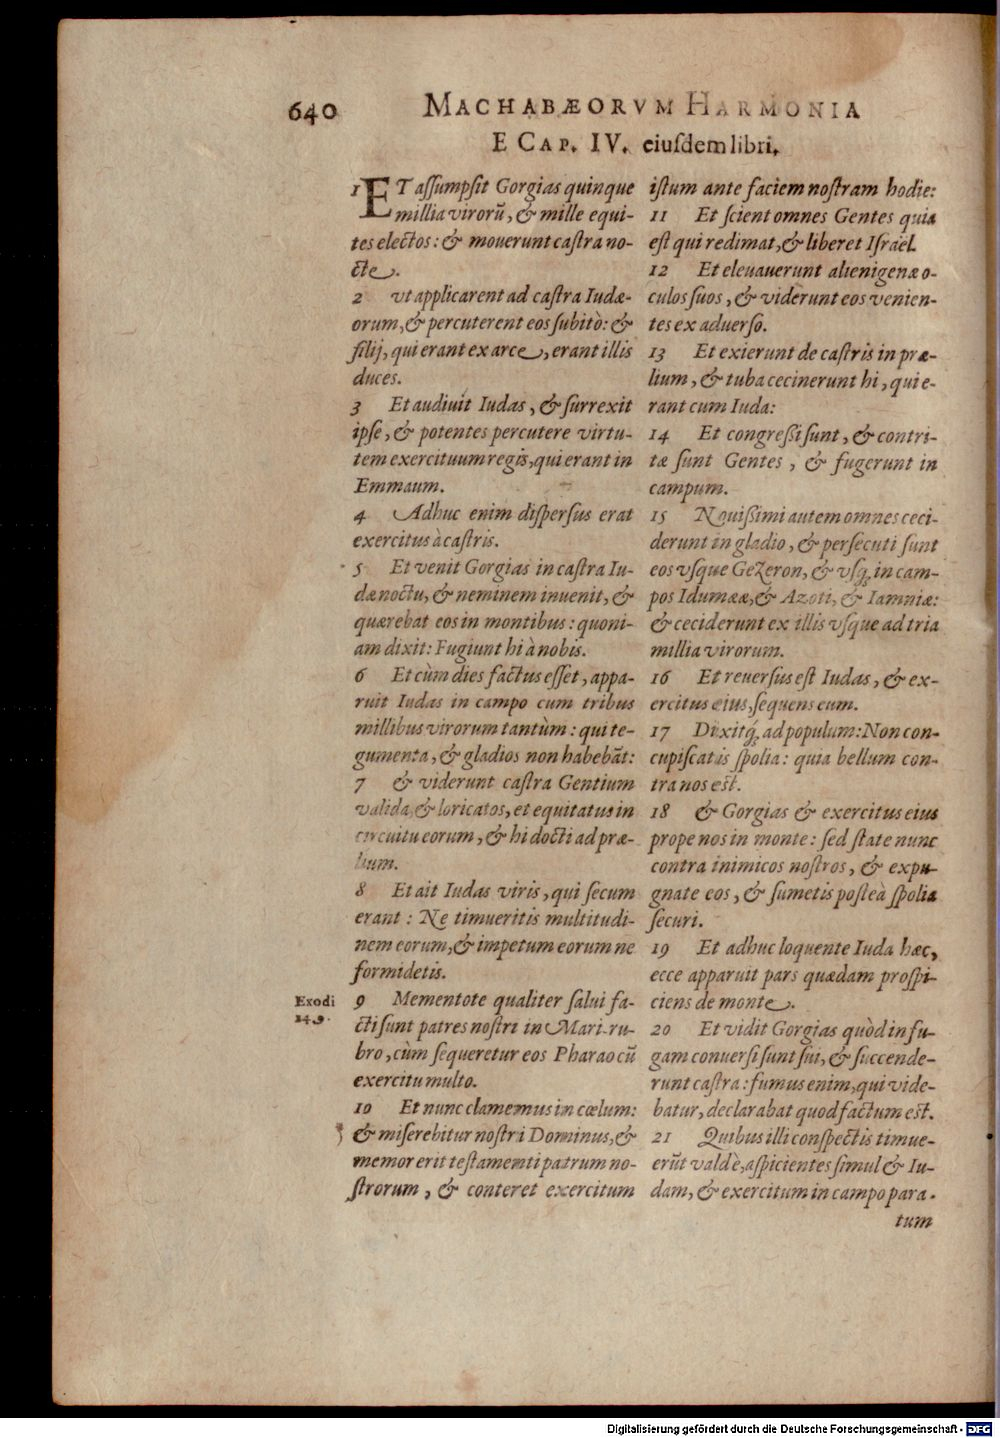 640
MACHABÆORVM HARMONIA
E CAP. IV. eiuſdem libri.
1 ET aſſumpſit Gorgias quinque
millia virorũ, & mille equi-
tes electos: & mouerunt caſtra no-
cte.
2 vt applicarent ad caſtra Iudæ-
orum, & percuterent eos ſubitò: &
filij, qui erant ex arce, erant illis
duces.
3 Et audiuit Iudas, & ſurrexit
ipſe, & potentes percutere virtu-
tem exercituum regis, qui erant in
Emmaum.
4 Adhuc enim diſperſus erat
exercitus à caſtris.
5 Et venit Gorgias in caſtra Iu-
dæ noctu, & neminem inuenit, &
quærebat eos in montibus: quoni-
am dixit: Fugiunt hi à nobis.
6 Et cùm dies factus eſſet, appa-
ruit Iudas in campo cum tribus
millibus virorum tantùm: qui te-
gumenta, & gladios non habebãt:
7 & viderunt caſtra Gentium
valida, & loricatos, et equitatus in
circuitu eorum, & hi docti ad præ-
lium.
8 Et ait Iudas viris, qui ſecum
erant: Ne timueritis multitudi-
nem eorum, & impetum eorum ne
formidetis.
Exodi
14.9.
9 Mementote qualiter ſalui fa-
cti ſunt patres noſtri in Mari ru-
bro, cùm ſequeretur eos Pharao cũ
exercitu multo.
10 Et nunc clamemus in cœlum:
& miſerebitur noſtri Dominus, &
memor erit teſtamenti patrum no-
ſtrorum, & conteret exercitum
iſtum ante faciem noſtram hodie:
11 Et ſcient omnes Gentes quia
eſt qui redimat, & liberet Iſrael.
12 Et eleuauerunt alienigenæ o-
culos ſuos, & viderunt eos venien-
tes ex aduerſo.
13 Et exierunt de caſtris in præ-
lium, & tuba cecinerunt hi, qui e-
rant cum Iuda:
14 Et congreßi ſunt, & contri-
tæ ſunt Gentes, & fugerunt in
campum.
15 Nouißimi autem omnes ceci-
derunt in gladio, & perſecuti ſunt
eos vſque GeZeron, & vſq; in cam-
pos Idumææ, & Azoti, & Iamniæ:
& ceciderunt ex illis vſque ad tria
millia virorum.
16 Et reuerſus eſt Iudas, & ex-
ercitus eius, ſequens eum.
17 Dixitq́; ad populum: Non con-
cupiſcatis ſpolia: quia bellum con-
tra nos eſt.
18 & Gorgias & exercitus eius
prope nos in monte: ſed ſtate nunc
contra inimicos noſtros, & expu-
gnate eos, & ſumetis poſteà ſpolia
ſecuri.
19 Et adhuc loquente Iuda hæc,
ecce apparuit pars quædam proſpi-
ciens de monte.
20 Et vidit Gorgias quòd in fu-
gam conuerſi ſunt ſui, & ſuccende-
runt caſtra: fumus enim, qui vide-
batur, declarabat quod factum eſt.
21 Quibus illi conſpectis timue-
erũt valdè, aſpicientes ſimul & Iu-
dam, & exercitum in campo para-
tum
Digitalisierung gefördert durch die Deutsche Forschungsgemeinschaft - DFG